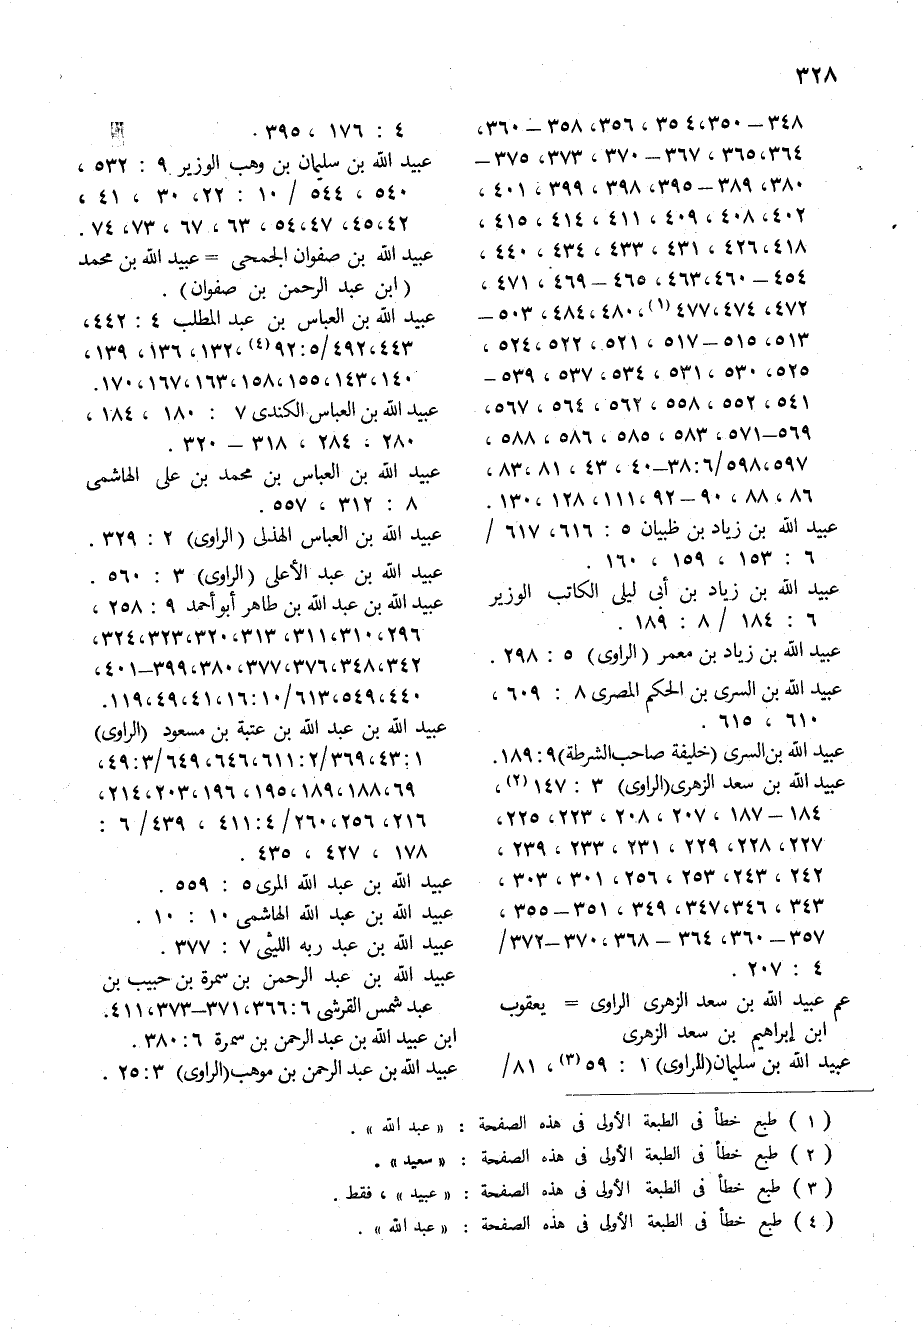 ٣٢٨
٣٤٨ – ٣٥٠، ٣٥٤ ، ٣٥٦، ٣٥٨ – ٣٦٠،
٣٦٤، ٣٦٥ ، ٣٦٧ – ٣٧٠ ، ٣٧٣، ٣٧٥ –
٣٨٠، ٣٨٩ – ٣٩٥، ٣٩٨ ، ٣٩٩ ، ٤٠١ ،
٤٠٢، ٤٠٨ ، ٤٠٩ ، ٤١١ ، ٤١٤ ، ٤١٥ ،
٤١٨ ، ٤٢٦ ، ٤٣١ ، ٤٣٣ ، ٤٣٤ ، ٤٤٠ ،
٤٥٤ – ٤٦٠، ٤٦٣ ، ٤٦٥ – ٤٦٩ ، ٤٧١ ،
٤٧٢، ٤٧٤ ، ٤٧٧(١)، ٤٨٠، ٤٨٤، ٥٠٣ –
٥١٣، ٥١٥ – ٥١٧ ، ٥٢١ ، ٥٢٢ ، ٥٢٤ ،
٥٢٥ ، ٥٣٠ ، ٥٣١ ، ٥٣٤ ، ٥٣٧ ، ٥٣٩ –
٥٤١ ، ٥٥٢ ، ٥٥٨ ، ٥٦٢ ، ٥٦٤ ، ٥٦٧،
٥٦٩–٥٧١ ، ٥٨٣ ، ٥٨٥ ، ٥٨٦ ، ٥٨٨ ،
٥٩٧، ٥٩٨/ ٦ :٣٨–٤٠ ، ٤٣ ، ٨١ ، ٨٣ ،
٨٦ ، ٨٨ ، ٩٠ – ٩٢ ، ١١١، ١٢٨ ، ١٣٠ .
عبيد الله بن زياد بن ظبيان ٥ : ٦١٦، ٦١٧ /
٦ : ١٥٣ ، ١٥٩ ، ١٦٠ .
عبيد الله بن زياد بن أبى ليلى الكاتب الوزير
٦ : ١٨٤ / ٨ : ١٨٩ .
عبيد الله بن زياد بن معمر (الراوى) ٥ : ٢٩٨ .
عبيد الله بن السرى بن الحكم المصرى ٨ : ٦٠٩ ،
٦١٠ ، ٦١٥ .
عبيد الله بن السرى (خليفة صاحب الشرطة) ٩ :١٨٩.
عبيد الله بن سعد الزهرى(الراوى) ٣ : ١٤٧(٢)،
١٨٤ – ١٨٧ ، ٢٠٧ ، ٢٠٨ ، ٢٢٣، ٢٢٥،
٢٢٧، ٢٢٨، ٢٢٩ ، ٢٣١ ، ٢٣٣ ، ٢٣٩ ،
٢٤٢ ، ٢٤٣ ، ٢٥٣ ، ٢٥٦ ، ٣٠١ ، ٣٠٣ ،
٣٤٣ ، ٣٤٦، ٣٤٧، ٣٤٩ ، ٣٥١ – ٣٥٥ ،
٣٥٧ – ٣٦٠، ٣٦٤ – ٣٦٨ ، ٣٧٠–٣٧٢/
٤ : ٢٠٧ .
عم عبيد الله بن سعد الزهرى الراوى = يعقوب
ابن إبراهيم بن سعد الزهرى
عبيد الله بن سليمان(الراوى) ١ : ٥٩(٣)، ٨١/
٤ : ١٧٦ ، ٣٩٥ .
عبيد الله بن سليمان بن وهب الوزير ٩ : ٥٣٢ ،
٥٤٠ ، ٥٤٤ / ١٠ : ٢٢، ٣٠ ، ٤١ ،
٤٢، ٤٥، ٤٧، ٥٤ ، ٦٣ ، ٦٧ ، ٧٣، ٧٤ .
عبيد الله بن صفوان الجمحى = عبيد الله بن محمد
( ابن عبد الرحمن بن صفوان) .
عبيد الله بن العباس بن عبد المطلب ٤ : ٤٤٢،
٤٤٣، ٤٩٢/ ٥ :٩٢(٤)، ١٣٢، ١٣٦ ، ١٣٩،
١٤٠، ١٤٣، ١٥٥، ١٥٨، ١٦٣، ١٦٧، ١٧٠.
عبيد الله بن العباس الكندى ٧ : ١٨٠ ، ١٨٤ ،
٢٨٠ ، ٢٨٤ ، ٣١٨ – ٣٢٠ .
عبيد الله بن العباس بن محمد بن على الهاشمى
٨ : ٣١٢ ، ٥٥٧ .
عبيد الله بن العباس الهذلى (الراوى) ٢ : ٣٢٩ .
عبيد الله بن عبد الأعلى (الراوى) ٣ : ٥٦٠ .
عبيد الله بن عبد الله بن طاهر أبو أحمد ٩ : ٢٥٨ ،
٢٩٦، ٣١٠، ٣١١، ٣١٣ ، ٣٢٠، ٣٢٣، ٣٢٤،
٣٤٢، ٣٤٨، ٣٧٦، ٣٧٧، ٣٨٠، ٣٩٩–٤٠١ ،
٤٤٠، ٥٤٩، ٦١٣/ ١٠ :١٦، ٤١، ٤٩، ١١٩.
عبيد الله بن عبد الله بن عتبة بن مسعود (الراوى)
١ :٤٣، ٣٦٩/ ٢ :٦١١، ٦٤٦، ٦٤٩/ ٣ :٤٩،
٦٩، ١٨٨، ١٨٩، ١٩٥، ١٩٦ ، ٢٠٣، ٢١٤،
٢١٦، ٢٥٦، ٢٦٠/ ٤ :٤١١ ، ٤٣٩/ ٦ :
١٧٨ ، ٤٢٧ ، ٤٣٥ .
عبيد الله بن عبد الله المرى ٥ : ٥٥٩ .
عبيد الله بن عبد الله الهاشمى ١٠ : ١٠ .
عبيد الله بن عبد ربه الليثى ٧ : ٣٧٧ .
عبيد الله بن عبد الرحمن بن سمرة بن حبيب بن
عبد شمس القرشى ٦ :٣٦٦، ٣٧١–٣٧٣، ٤١١.
ابن عبيد الله بن عبد الرحمن بن سمرة ٦ :٣٨٠ .
عبيد الله بن عبد الرحمن بن موهب(الراوى) ٣ :٢٥ .
( ١ ) طبع خطأ فى الطبعة الأولى فى هذه الصفحة : « عبد الله » .
( ٢ ) طبع خطأ فى الطبعة الأولى فى هذه الصفحة : « سعيد » .
( ٣ ) طبع خطأ فى الطبعة الأولى فى هذه الصفحة : « عبيد » ، فقط .
( ٤ ) طبع خطأ فى الطبعة الأولى فى هذه الصفحة : « عبد الله » .